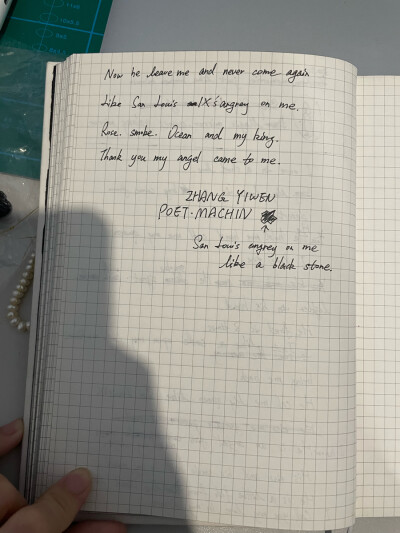 Now he leave me and never come again
Like San Louis IX's angrey on me.
Rose. smoke. Ocean and my king.
Thank you my angel came to me.
ZHANG YIWEN
POET·MACHIN
San Louis angrey on me
like a black stone.